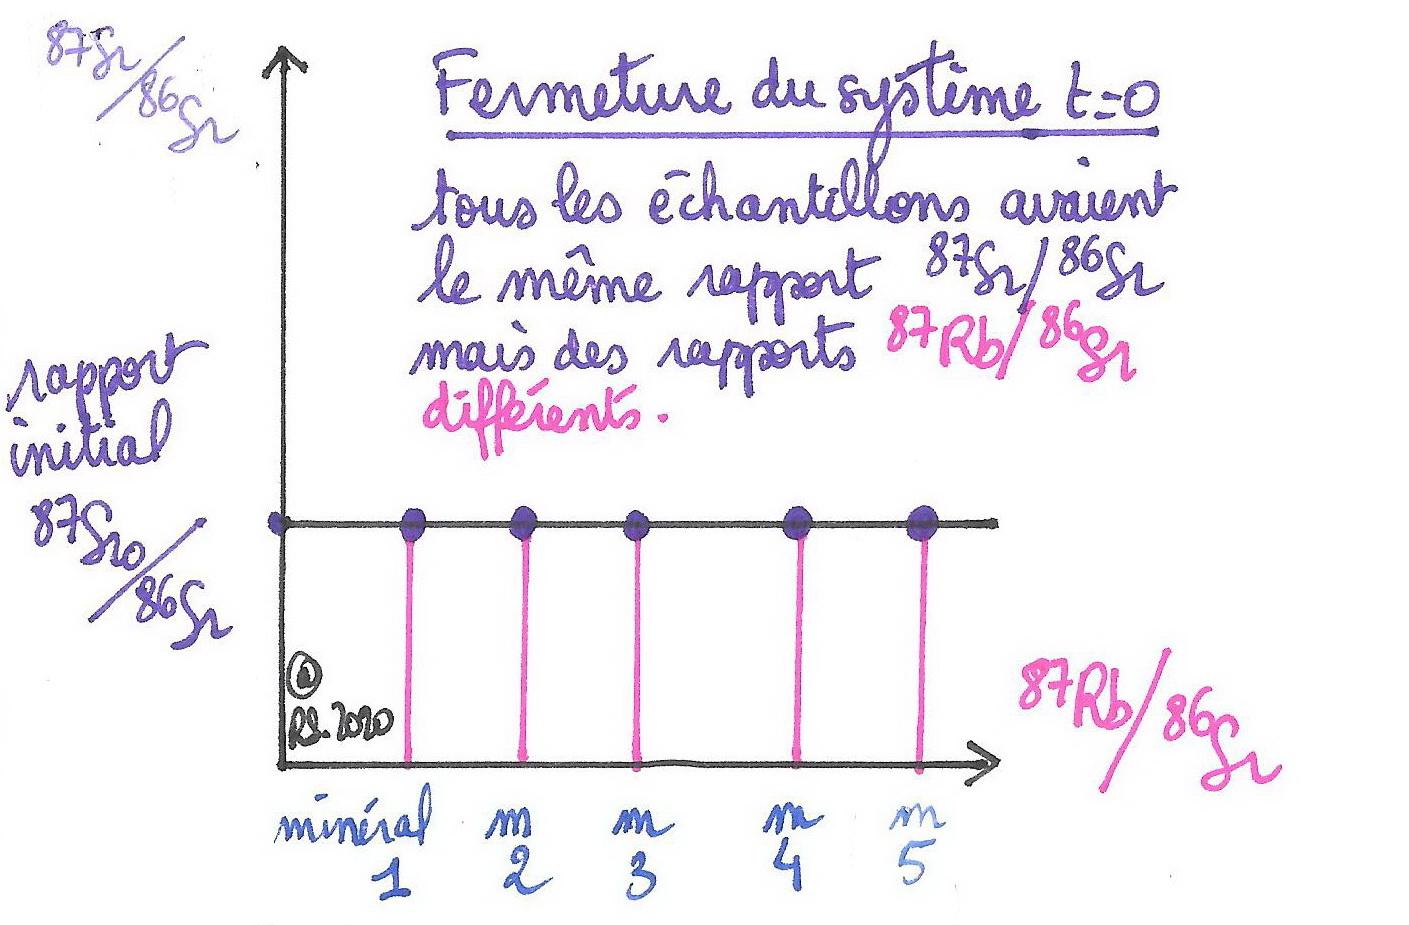 87Sr/86Sr
Fermeture du système t=0
tous les échantillons avaient
le même rapport 87Sr/86Sr
mais des rapports 87Rb/86Sr
différents.
rapport
initial
87Sr0/86Sr
RS.2020
87Rb/86Sr
minéral m m m m
1 2 3 4 5